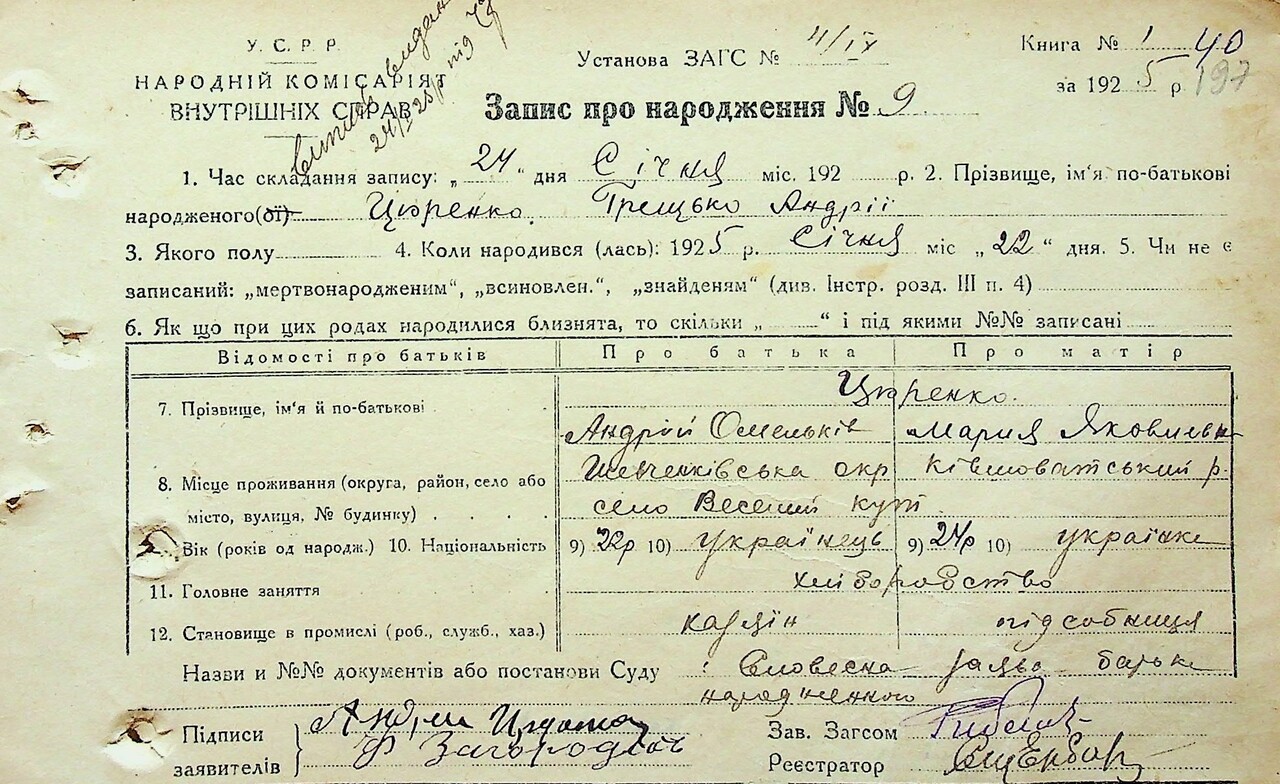 У. С. Р. Р.
НАРОДНІЙ КОМІСАРІЯТ
ВНУТРІШНІХ СПРАВ
24/I 25р під
Установа ЗАГС № 4/IX
Книга № 1 40
за 1925 р. 197
Запис про народження № 9
1. Час складання запису: „24“ дня Січня міс. 192 р. 2. Прізвище, ім'я по-батькові
народженого(ої) Цюренко Грецько Андрії
3. Якого полу 4. Коли народився (лась): 1925 р. Січня міс „22“ дня. 5. Чи не є
записаний: „мертвонародженим“, „всиновлен.“, „знайденям“ (див. Інстр. розд. III п. 4)
6. Як що при цих родах народилися близнята, то скільки „ “ і під якими №№ записані
Відомості про батьків Про батька Про матір
Цюренко.
7. Прізвище, ім'я й по-батькові
Андрій Омельків Мария Яковлевн
Шевченківська окр Ківшоватський р.
8. Місце проживання (округа, район, село або
село Веселий кут
місто, вулиця, № будинку)
Вік (років од народж.) 10. Національність 9) 22р 10) українець 9) 24р 10) українка
11. Головне заняття хліборобство
12. Становище в промислі (роб., служб., хаз.) хазяїн підсобниця
Назви и №№ документів або постанови Суду : Словесна заява батька
народженного
Підписи
заявителів
Ф Загородній
Зав. Загсом
Реєстратор